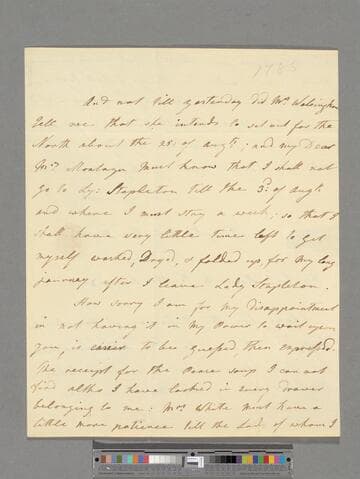 1786
And not till yesterday did Mrs. Walsingham
tell me that she intends to set out for the
North about the 28: of augt; and my Dear
Mrs. Montagu must know that I shall not
go to Ly: Stapleton till the 3d: of augt:
and where I must stay a week; so that I
shall have very little time left to get
myself washed, Dry'd, & folded up, for my long
journey after I leave Lady Stapleton.
How sorry I am for my disappointment
in not having it in my Power to wait upon
you, is easier to be guessed, then expressed.
The receipt for the Pease soup I can not
find altho I have looked in every drawer
belonging to me: Mrs. White must have a
little more patience till the Lad: of whom I